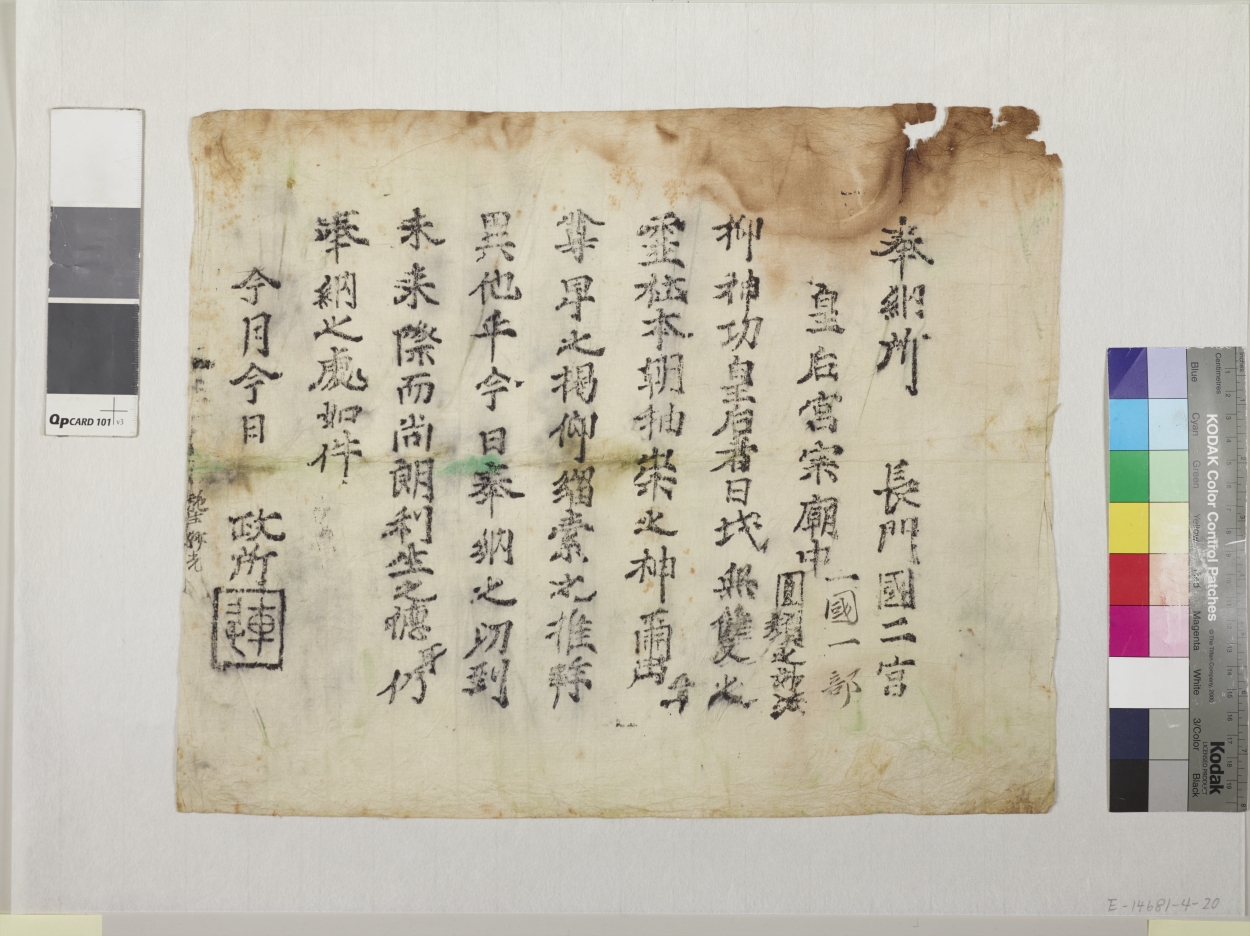 奉納所 長門國二宮
皇后宮宗廟中
一國一部
圓頓之妙法
抑神功皇后者日域無雙之
霊社本朝崇之神
尊卑之揭仰緇素之推
異他乎今日奉納之功到
未来際而尚朗利生之德乎仍
奉納之處如件
今月今日 政所
QpCARD 101 v3
KODAK Color Control Patches
Kodak
LICENSED PRODUCT
© The Tiffen Company, 2000
Centimetres
Blue
Cyan
Green
Yellow
Red
Magenta
White
3/Color
Black
E-14681-4-20